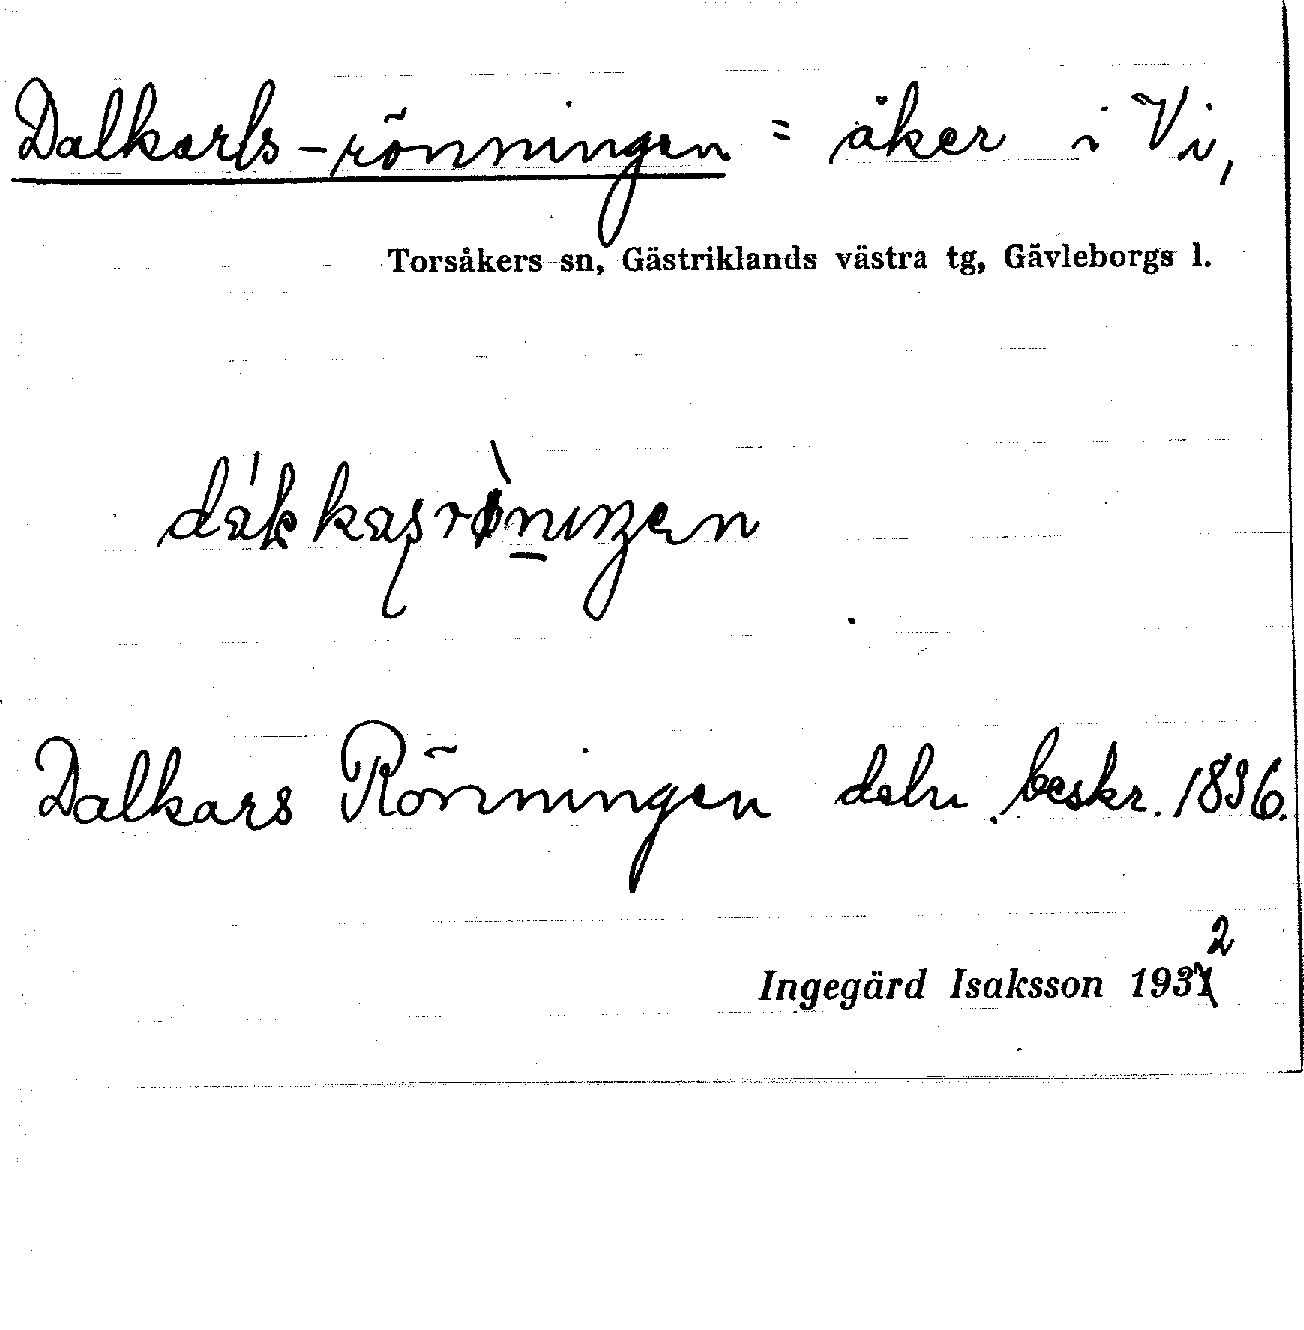 Dalkarls-rönningen = åker i Vi,
Torsåkers sn, Gästriklands västra tg, Gävleborgs l.
Dalkars Rönningen deln. beskr. 1836.
Ingegärd Isaksson 1932